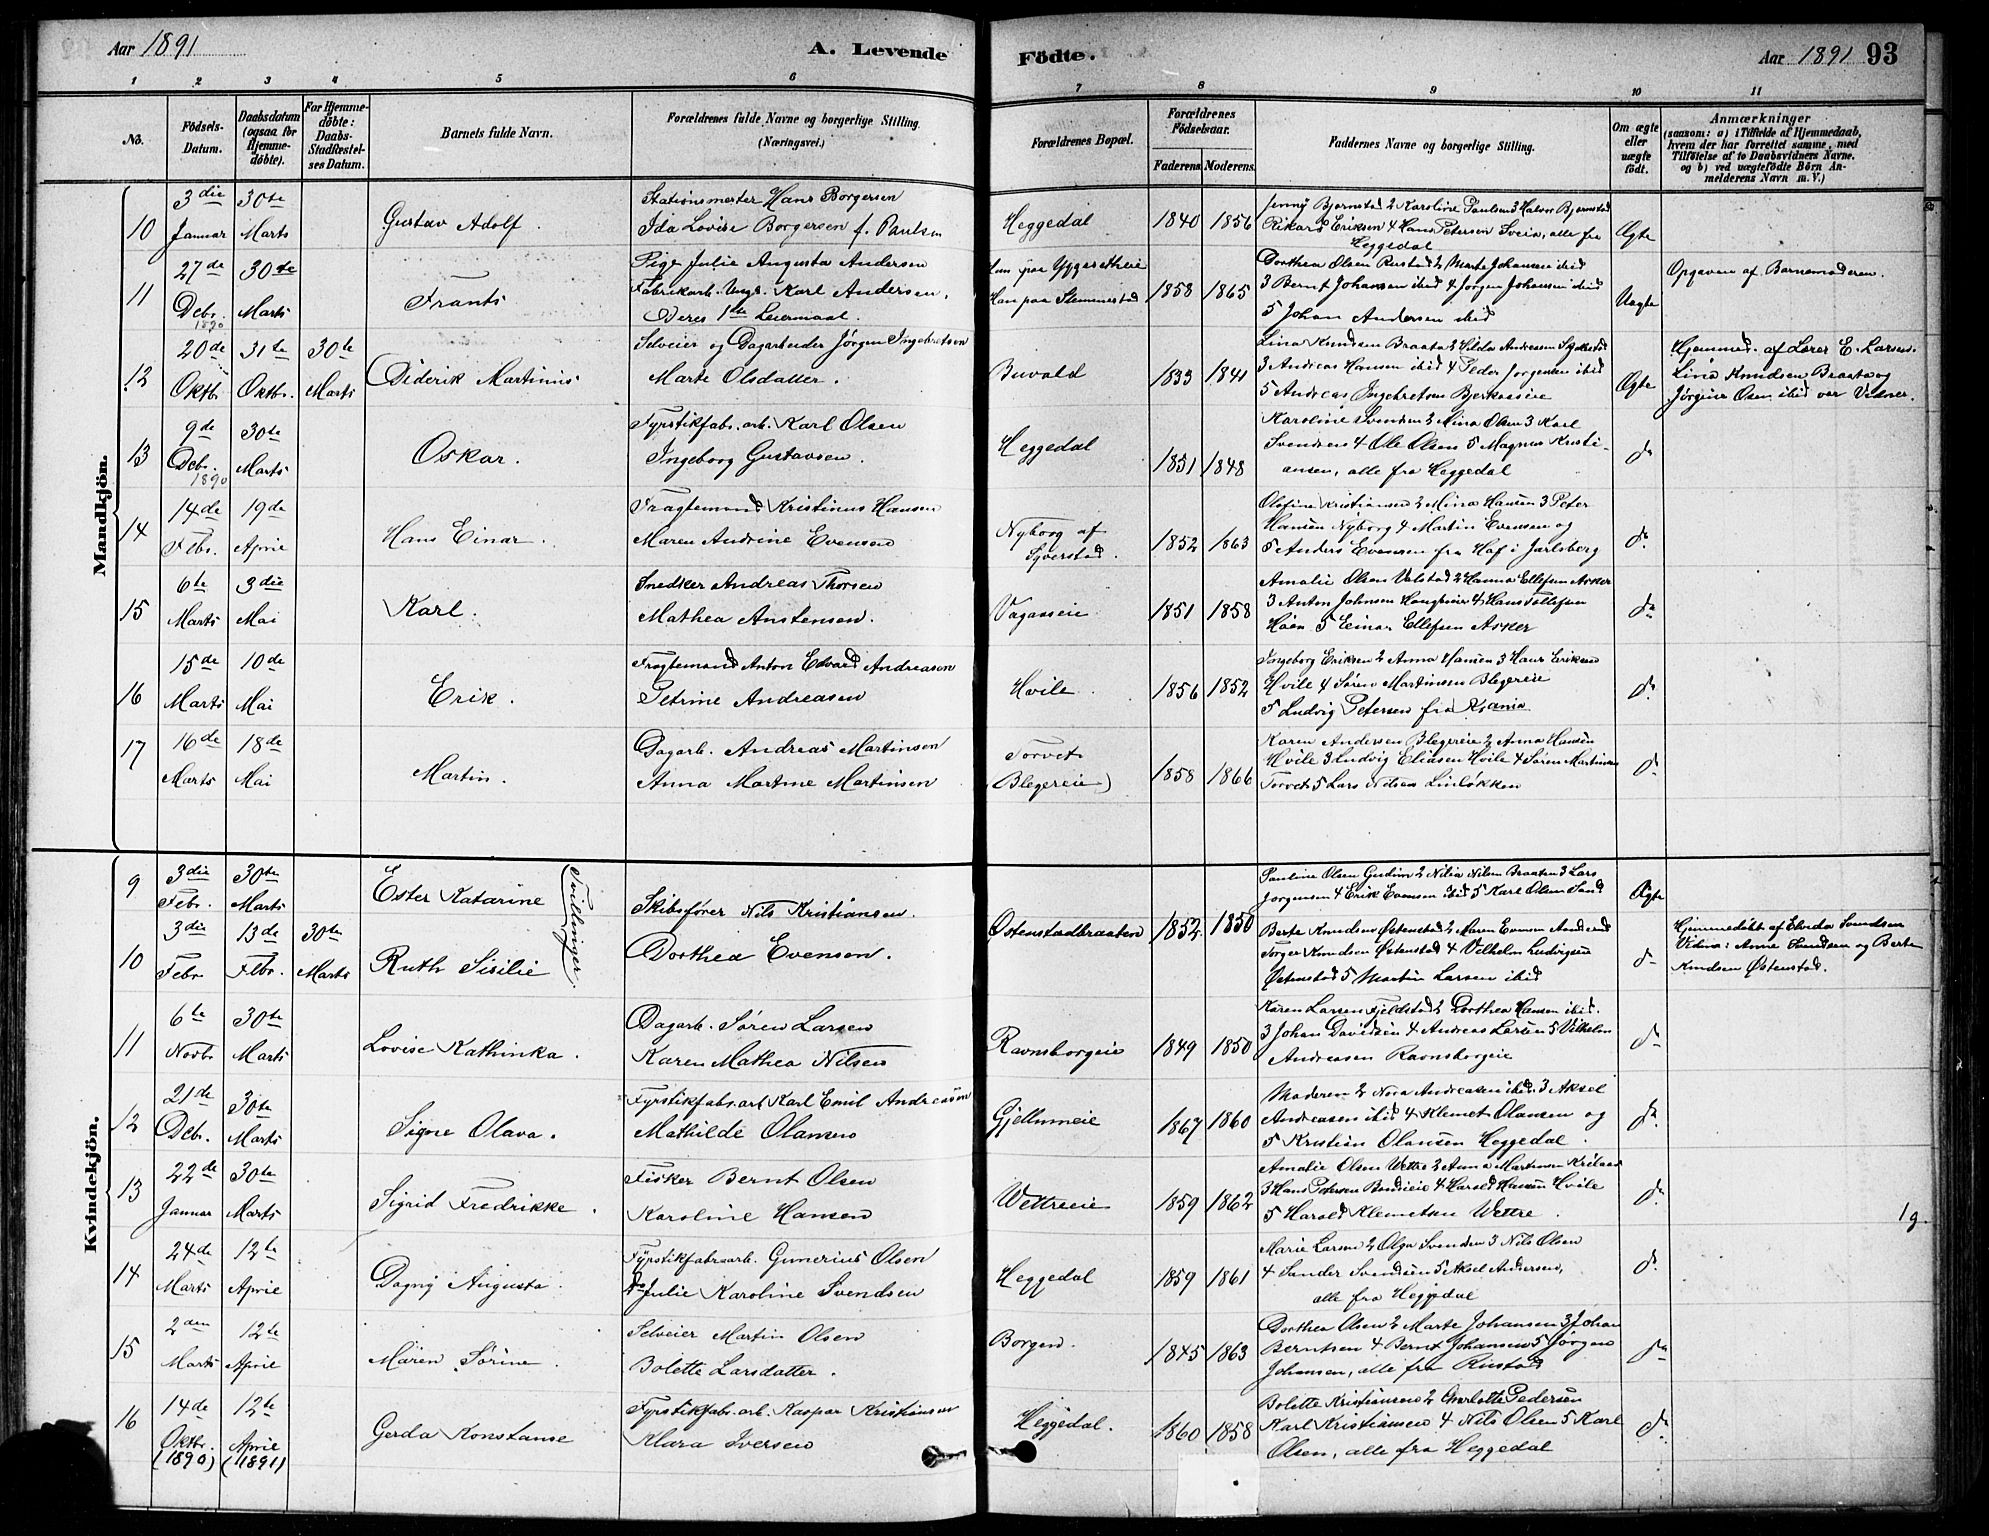 Aar 1891
A. Levende
Födte.
Aar 1891 93
1 2 3 4 5 6 7 8 9 10 11
No.
Födsels-
Datum.
Daabsdatum
(ogsaa for
Hjemme-
döbte).
For Hjemme-
döbte:
Daabs-
Stadfæstel-
ses Datum.
Barnets fulde Navn.
Forældrenes fulde Navne og borgerlige Stilling.
(Næringsvei.)
Forældrenes Bopæl.
Forældrenes
Födselsaar.
Faderens. Moderens.
Faddernes Navne og borgerlige Stilling.
Om ægte
eller
uægte
födt.
Anmærkninger
(saasom: a) i Tilfælde af Hjemmedaab,
hvem der har forrettet samme, med
Tilföielse af to Daabsvidners Navne.
og b) ved uægtefödte Börn An-
melderens Navn m. V.)
Mandkjön.
10
3die
Januar
30te
Marts
Gustav Adolf.
Stationsmester Hans Borgersen
Ida Lovise Borgersen f. Paulsen
Heggedal
1840 1856
Jenny Bjørnstad 2 Karoline Paulsen 3 Halvor Bjørnstad
Rikard Eriksen 4 Hans Petersen Sveia, alle fra
Heggedal
Ægte
11
27de
Debr.
1890
30te
Marts
Frants
Pige Julie Augusta Andersen
Fabrikarb. Ungk. Karl Andersen.
Deres 1ste Leiermaal.
Hun paa Yggesetheie
Han paa Slemmestad
1858 1865
Dorthea Olsen Rustad 2 Marte Johansen ibid
3 Bernt Johansen ibid 4 Jørgen Johansen ibid
5 Johan Andersen ibid
Uægte
Opgaven af Barnemoderen.
12
20de
Oktbr.
31te
Oktbr.
30te
Marts
Diderik Martinius
Selveier og Dagarbeider Jørgen Ingebretsen
Marte Olsdatter.
Buvald
1833 1841
Lina Knudsen Braata 2 Hilda Andresen
3 Andreas Hansen ibid 4 Peder Jørgensen ibid
5 Andreas Ingebretsen Bjerkaaseie
Ægte
Hjemmed. af Lærer E. Larsen.
Lina Knudsen Braata og
Jørgine Osen ibid var Vidner.
13
9de
Debr.
1890
30te
Marts
Oskar.
Fyrstikfabr. arb. Karl Olsen
Ingeborg Gustavsen.
Heggedal
1851 1848
Karoline Svendsen 2 Mina Olsen 3 Karl
Svendsen 4 Ole Olsen 5 Magnus Kristi-
ansen, alle fra Heggedal
do
14
14de
Febr.
19de
April
Hans Einar.
Fragtemand Kristinus Hansen
Maren Andrine Evensen
Nyborg af
Syverstad.
1852 1863
Olefine Kristiansen 2 Mina Hansen 3 Peter
Hansen Nyborg 4 Martin Evensen og
5 Anders Evensen fra Hof i Jarlsberg
do
15
6te
Marts
3die
Mai
Karl.
Snedker Andreas Thorsen
Mathea Anstensen.
Vagaaseie
1851 1858
Amalie Olsen Valstad 2 Hanna Ellefsen Asker
3 Anton Johnsen 4 Hans Tollefsen
5 Einar Ellefsen Asker
do
16
15de
Marts
10de
Mai
Erik.
Fragtemand Anton Edvard Andreasen
Petrine Andreasen
Hvile.
1856 1852
Ingeborg Eriksen 2 Anna Hansen 3 Hans Eriksen
Hvile 4 Søren Martinsen Blegereie
5 Ludvig Petersen fra Kjania
do
17
16de
Marts
18de
Mai
Martin.
Dagarb. Andreas Martinsen
Anna Martine Martinsen
Torvet
Blegereie)
1858 1866
Karen Andersen Blegereie 2 Anna Hansen
Hvile 3 Ludvig Eliasen Hvile 4 Søren Martinsen
Torvet 5 Lars Nilsen Linløkken
do
Kvindekjön.
9
3die
Febr.
30te
Marts
Ester Katarine
Tvillinger.
Skibsfører Nils Kristiansen.
Dorthea Evensen.
Østenstadbraaten
1852 1850
Pauline Olsen 2 Nilia Nilsen Braaten 3 Lars
Jørgensen 4 Erik Evensen ibid 5 Karl Olsen Sand
Ægte
10
3die
Febr
13de
Febr.
30te
Marts
Ruth Sisilie
Berte Knudsen Østenstad 2 Maren Evensen
Torger Knudsen Østenstad 4 Vilhelm Ludvigsen
Østenstad 5 Martin Larsen ibid
do
Hjemmedøbt af Elnda Svendsen
Vidner: Anne Svendsen og Berte
Knudsen Østenstad.
11
6te
Novbr
30te
Marts
Lovise Kathinka.
Dagarb. Søren Larsen
Karen Mathea Nilsen
Ravnsborgeie
1849 1850
Karen Larsen Fjeldstad 2 Dorthea Hansen ibid.
3 Johan Davidsen 4 Andreas Larsen 5 Vilhelm
Andreasen Ravnsborgeie
do
12
21de
Debr.
30te
Marts
Signe Olava.
Fyrstikfabr. arb Karl Emil Andreasen
Mathilde Olausen
Gjellumeie
1867 1860
Moderen 2 Nora Andreasen ibid. 3 Aksel
Andreasen ibid 4 Klemet Olausen og
5 Kristian Olausen Heggedal.
do
13
22de
Januar
30te
Marts
Sigrid Fredrikke.
Fisker Bernt Olsen
Karoline Hansen
Wettreeie
1859 1862
Amalie Olsen Wettre 2 Anna Martinsen
3 Hans Petersen Bondieie 4 Harald Hansen Hvile
5 Harald Klemetsen Wettre.
do
19
14
24de
Marts
12te
April
Dagny Augusta.
Fyrstikfabrarb. Gunerius Olsen
do Julie Karoline Svendsen
Heggedal
1859 1861
Marie Larsen 2 Olga Svendsen 3 Nils Olsen
4 Sander Svendsen 5 Aksel Andersen,
alle fra Heggedal
do
15
2den
Marts
12te
April
Maren Sørine.
Selveier Martin Olsen
Bolette Larsdatter.
Borgen.
1845 1863
Dorthea Olsen 2 Marte Johansen 3 Johan
Berntsen 4 Bernt Johansen 5 Jørgen
Johansen, alle fra Rustad
do
16
14de
Oktbr.
(1890)
12te
April
(1891)
Gerda Konstanse
Fyrstikfabr. arb. Kaspar Kristiansen
Klara Iversen
Heggedal.
1860 1858
Bolette Kristiansen 2 Charlotte Pedersen
Karl Kristiansen 4 Nils Olsen 5 Karl
Olsen, alle fra Heggedal
do